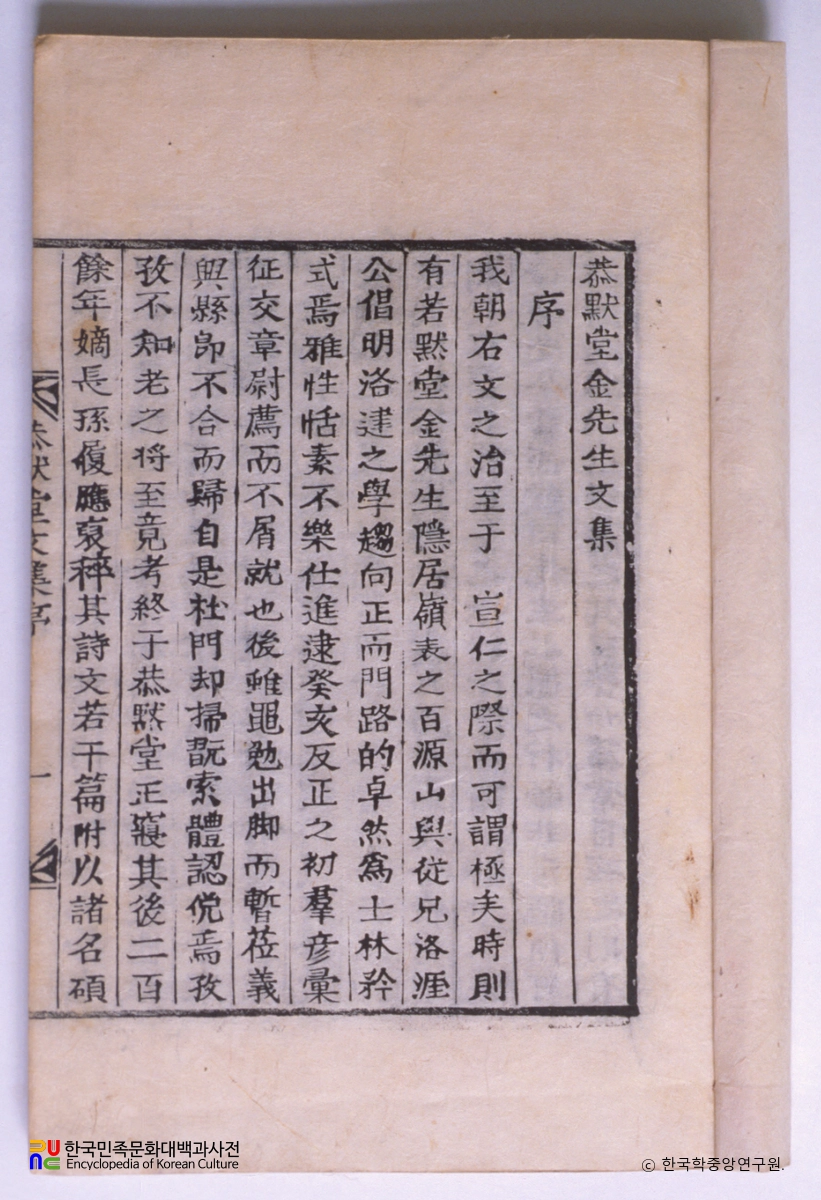 恭默堂金先生文集
序
我朝右文之治至于 宣仁之際而可謂極矣時則
有若默堂金先生隱居嶺表之百源山與從兄洛涯
公倡明洛建之學趨向正而門路的卓然爲士林矜
式焉雅性恬素不樂仕進逮癸亥反正之初羣彦彙
征交章尉薦而不屑就也後雖黽勉出脚而暫莅義
興縣卽不合而歸自是杜門却掃翫索體認俛焉孜
孜不知老之將至竟考終于恭默堂正寢其後二百
餘年嫡長孫履應裒稡其詩文若干篇附以諸名碩
恭默堂文集序
一
한국민족문화대백과사전
Encyclopedia of Korean Culture
ⓒ 한국학중앙연구원.